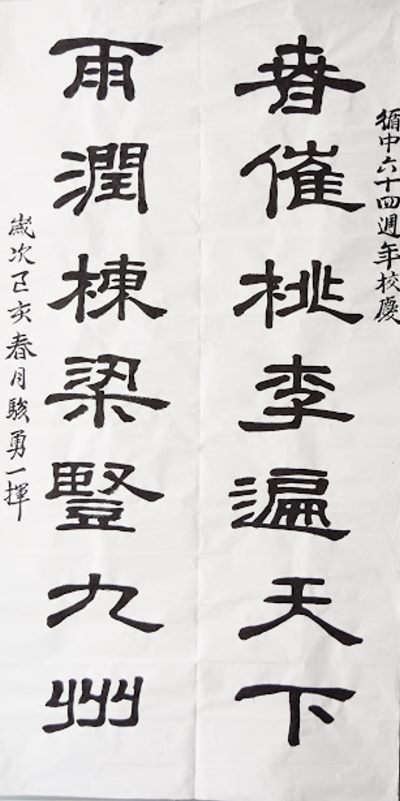 循中六十四週年校慶
春催桃李遍天下
雨潤棟梁豎九州
歲次己亥春月駿勇一揮